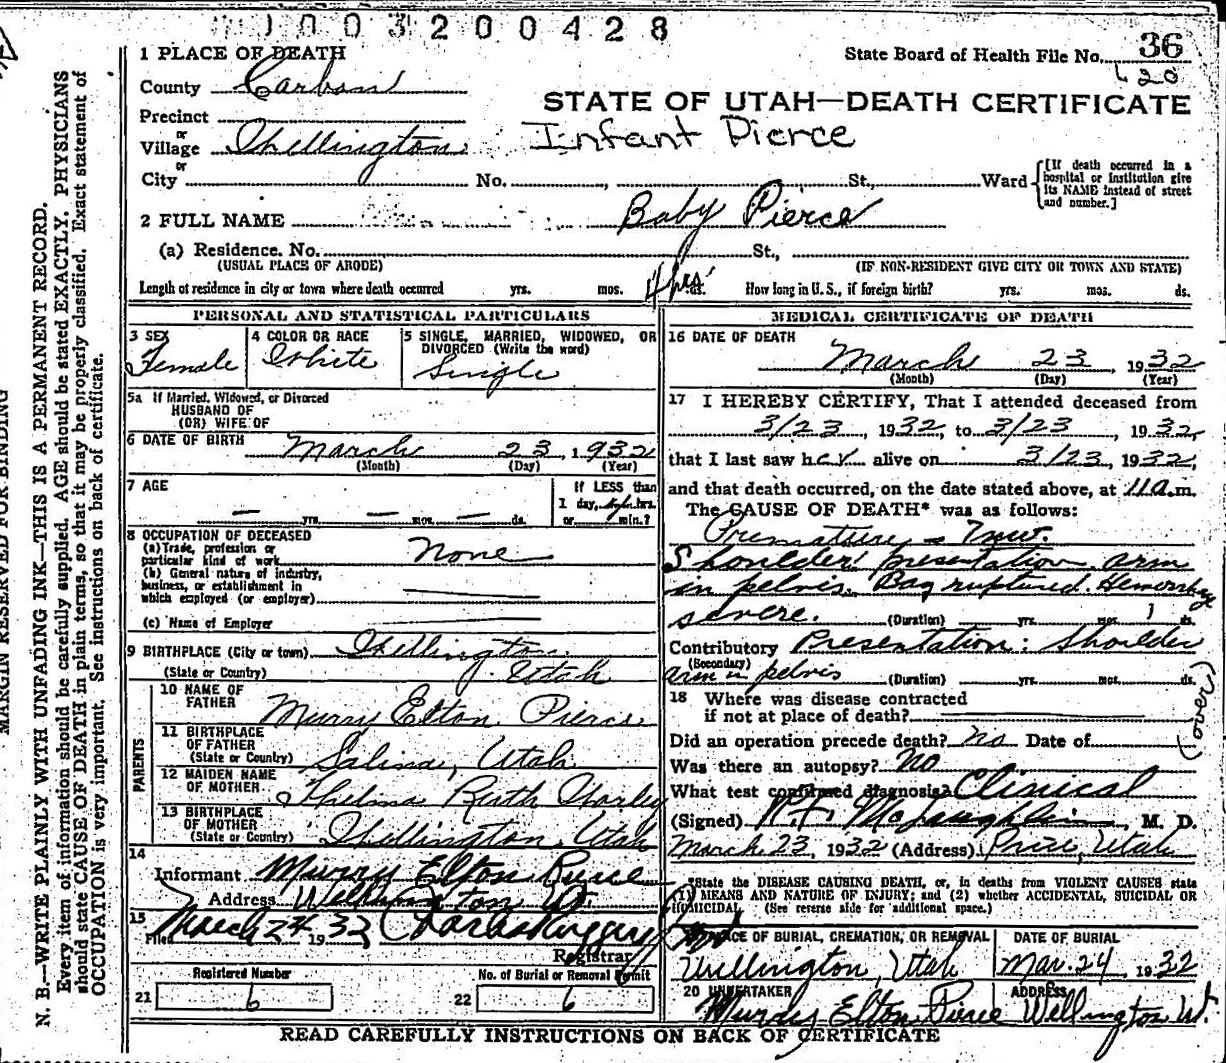 1003200428
1 PLACE OF DEATH
State Board of Health File No. 36
County Carbon
620
STATE OF UTAH—DEATH CERTIFICATE
Precinct
or
Infant Pierce
Village Wellington
or
City No. , St., Ward
[If death occurred in a hospital or institution give its NAME instead of street and number.]
2 FULL NAME Baby Pierce
(a) Residence. No. St.,
(USUAL PLACE OF ABODE) (IF NON-RESIDENT GIVE CITY OR TOWN AND STATE)
Length of residence in city or town where death occurred yrs. mos. 4 hrs. ds. How long in U. S., if foreign birth? yrs. mos. ds.
PERSONAL AND STATISTICAL PARTICULARS
3 SEX
Female
4 COLOR OR RACE
White
5 SINGLE, MARRIED, WIDOWED, OR
DIVORCED (Write the word)
Single
5a If Married, Widowed, or Divorced
HUSBAND OF
(OR) WIFE OF
6 DATE OF BIRTH March 23, 1932
(Month) (Day) (Year)
7 AGE
— yrs. — mos. — ds.
If LESS than
1 day, hrs.
or min.?
8 OCCUPATION OF DECEASED
(a) Trade, profession or
particular kind of work None
(b) General nature of industry,
business, or establishment in
which employed (or employer)
(c) Name of Employer
9 BIRTHPLACE (City or town) Wellington
(State or Country) Utah
PARENTS
10 NAME OF
FATHER Murry Elton Pierce
11 BIRTHPLACE
OF FATHER
(State or Country) Salina, Utah
12 MAIDEN NAME
OF MOTHER Thelma Ruth
13 BIRTHPLACE
OF MOTHER
(State or Country) Wellington, Utah
14
Informant Murry Elton Pierce
Address Wellington Ut.
15
Filed March 24 1932
Registrar
Registered Number
21 6
No. of Burial or Removal Permit
22 6
MEDICAL CERTIFICATE OF DEATH
16 DATE OF DEATH
March 23, 1932
(Month) (Day) (Year)
17 I HEREBY CERTIFY, That I attended deceased from
3/23, 1932, to 3/23, 1932,
that I last saw her alive on 3/23, 1932,
and that death occurred, on the date stated above, at 11 a.m.
The CAUSE OF DEATH* was as follows:
Premature - 7 mo.
Shoulder presentation arm
in pelvis. Bag ruptured. Hemorrhage
severe. (Duration) yrs. mos. 1 ds.
Contributory Presentation: Shoulder
(Secondary)
arm in pelvis (Duration) yrs. mos. ds.
(over)
18 Where was disease contracted
if not at place of death?
Did an operation precede death? No Date of
Was there an autopsy? No
What test confirmed diagnosis? Clinical
(Signed) McLaughlin, M. D.
March 23, 1932 (Address) Price, Utah
*State the DISEASE CAUSING DEATH, or, in deaths from VIOLENT CAUSES state
(1) MEANS AND NATURE OF INJURY; and (2) whether ACCIDENTAL, SUICIDAL OR
HOMICIDAL. (See reverse side for additional space.)
PLACE OF BURIAL, CREMATION, OR REMOVAL
Wellington, Utah
DATE OF BURIAL
Mar. 24, 1932
20 UNDERTAKER
Murry Elton Pierce
ADDRESS
Wellington Ut.
READ CAREFULLY INSTRUCTIONS ON BACK OF CERTIFICATE
MARGIN RESERVED FOR BINDING
N. B.—WRITE PLAINLY WITH UNFADING INK—THIS IS A PERMANENT RECORD.
Every item of information should be carefully supplied. AGE should be stated EXACTLY. PHYSICIANS
should state CAUSE OF DEATH in plain terms, so that it may be properly classified. Exact statement of
OCCUPATION is very important. See instructions on back of certificate.